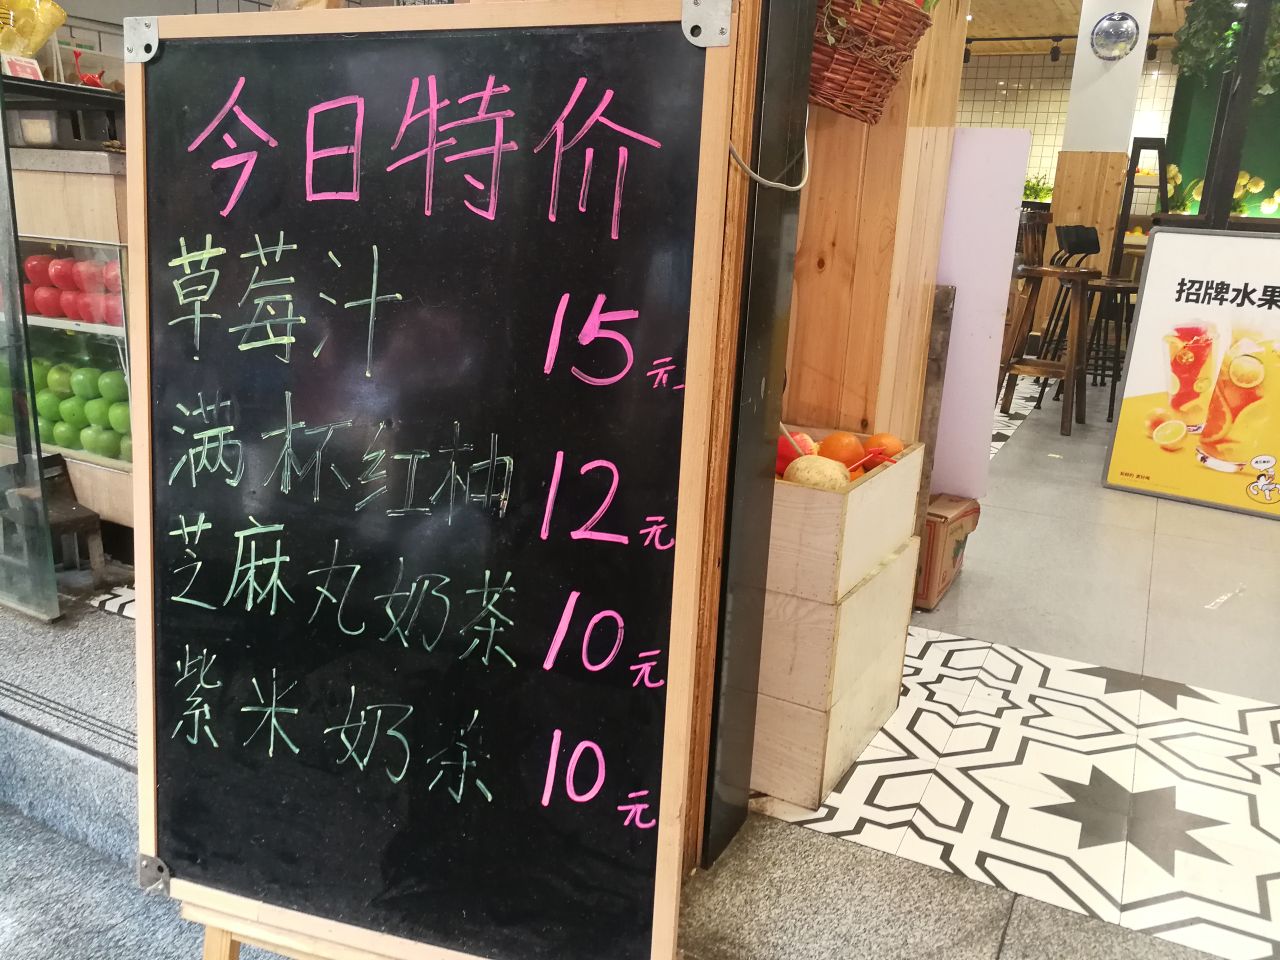 今日特价
草莓汁 15元
满杯红柚 12元
芝麻丸奶茶 10元
紫米奶茶 10元
招牌水果